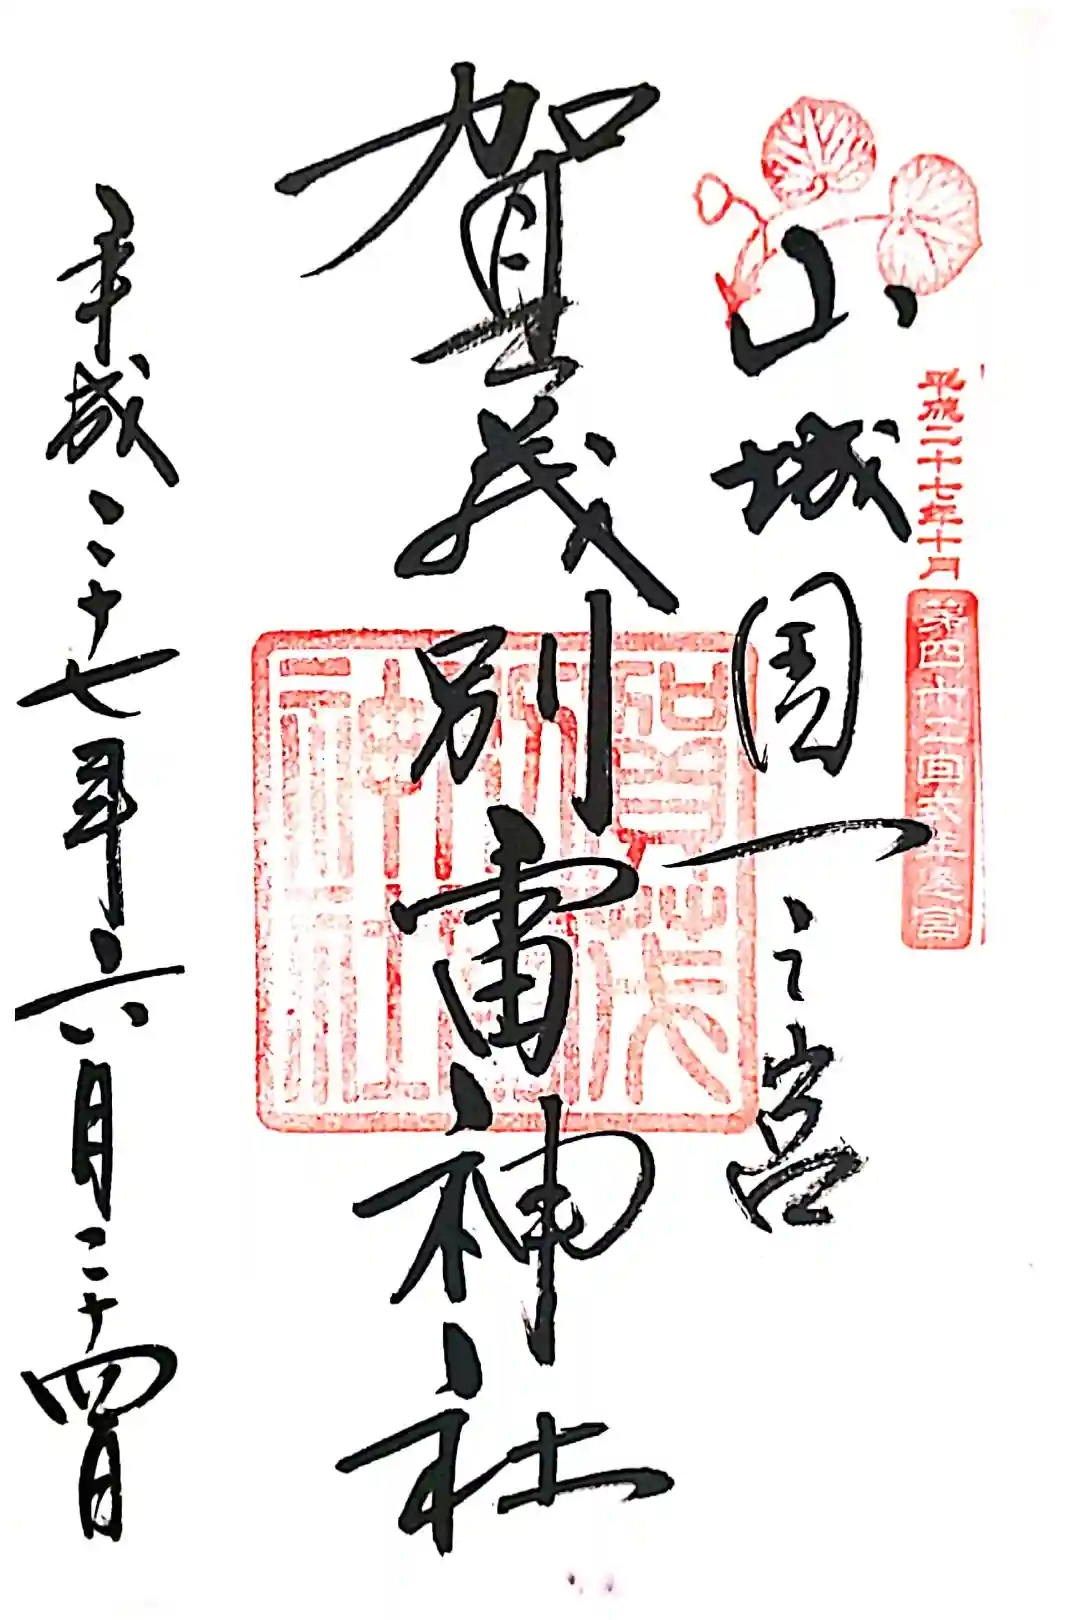 平成二十七年十月
第四十二回式年遷宮
山城國一之宮
賀茂別雷神社
賀茂別雷神社
平成二十七年六月二十四日